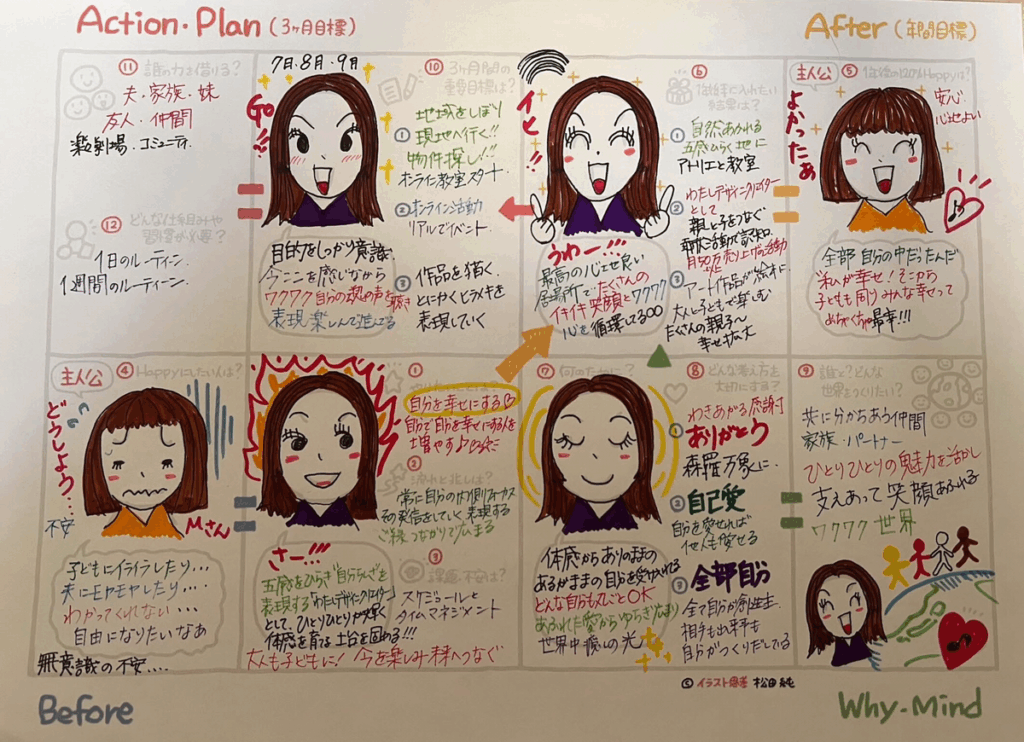 Action・Plan(3ヶ月目標)
After(年間目標)
⑪ 誰の力を借りる?
夫・家族・妹
友人・仲間
楽劇場・コミュニティ
⑫ どんな仕組みや
習慣が必要?
1日のルーティーン
1週間のルーティーン
7月・8月・9月
Go!!
⑩ 3ヶ月間の
重要目標は?
① 地域をしぼり
現地へ行く!!
物件探し!!
オンライン教室スタート
② オンライン活動
リアルでイベント
③ 作品を描く
とにかくヒラメキを
表現していく
目的をしっかり意識
今ここを感じながら
ワクワク自分の魂の声を聴き
表現 楽しんで進んでる
イヒ!!
うわー!!!
最高の心地良い
居場所でたくさんの
イキイキ笑顔とワクワク
心を循環してる
⑥
結果は?
① 自然あふれる
五感ひらく地に
アトリエと教室
② わたしデザインクリエイター
として
親と子をつなぐ
③ アート作品が
大人と子どもで楽しむ
たくさんの親子へ
幸せ拡大
主人公
⑤ 1年後の120%Happyは?
よかったぁ
安心
心地よい
全部 自分の中だったんだ
私が幸せ!そこから
子ども 周り みんな幸せって
めちゃくちゃ最幸!!!
主人公
④ Happyにしたい人は?
どうしよう・・・
不安
Mさん
子どもにイライラしたり・・・
夫にモヤモヤしたり・・・
わかってくれない・・・
自由になりたいなぁ
無意識の不安・・・・
①
自分を幸せにする
自分で自分を幸せにする人を
増やす
②
常に自分の内側フォーカス
その発信をしていく 表現する
ご縁 つながりで広まる
③ 課題・不安は?
スケジュールと
タイムマネジメント
さー!!!
五感をひらき"自分らしさ"を
表現する「わたしデザインクリエイター」
として、ひとりひとりが輝く
体感を育てる 土台を固める!!!
大人も子どもに!今を楽しみ未来へつなぐ
⑦ 何のために?
体感からありのまま
あるがままの自分を受け入れる
どんな自分も丸ごとOK
あふれた愛からゆらぎ広がり
世界中 癒しの光
⑧ どんな考え方を
大切にする?
① わきあがる感謝
ありがとう
森羅万象に
② 自己愛
自分を愛せれば
他人も愛せる
③ 全部自分
全て自分が創造主
相手も出来事も
自分がつくりだしている
⑨ 誰と?どんな
世界をつくりたい?
共に分かちあう仲間
家族・パートナー
ひとりひとりの魅力を活かし
支えあって笑顔あふれる
ワクワク世界
Before
Why・Mind